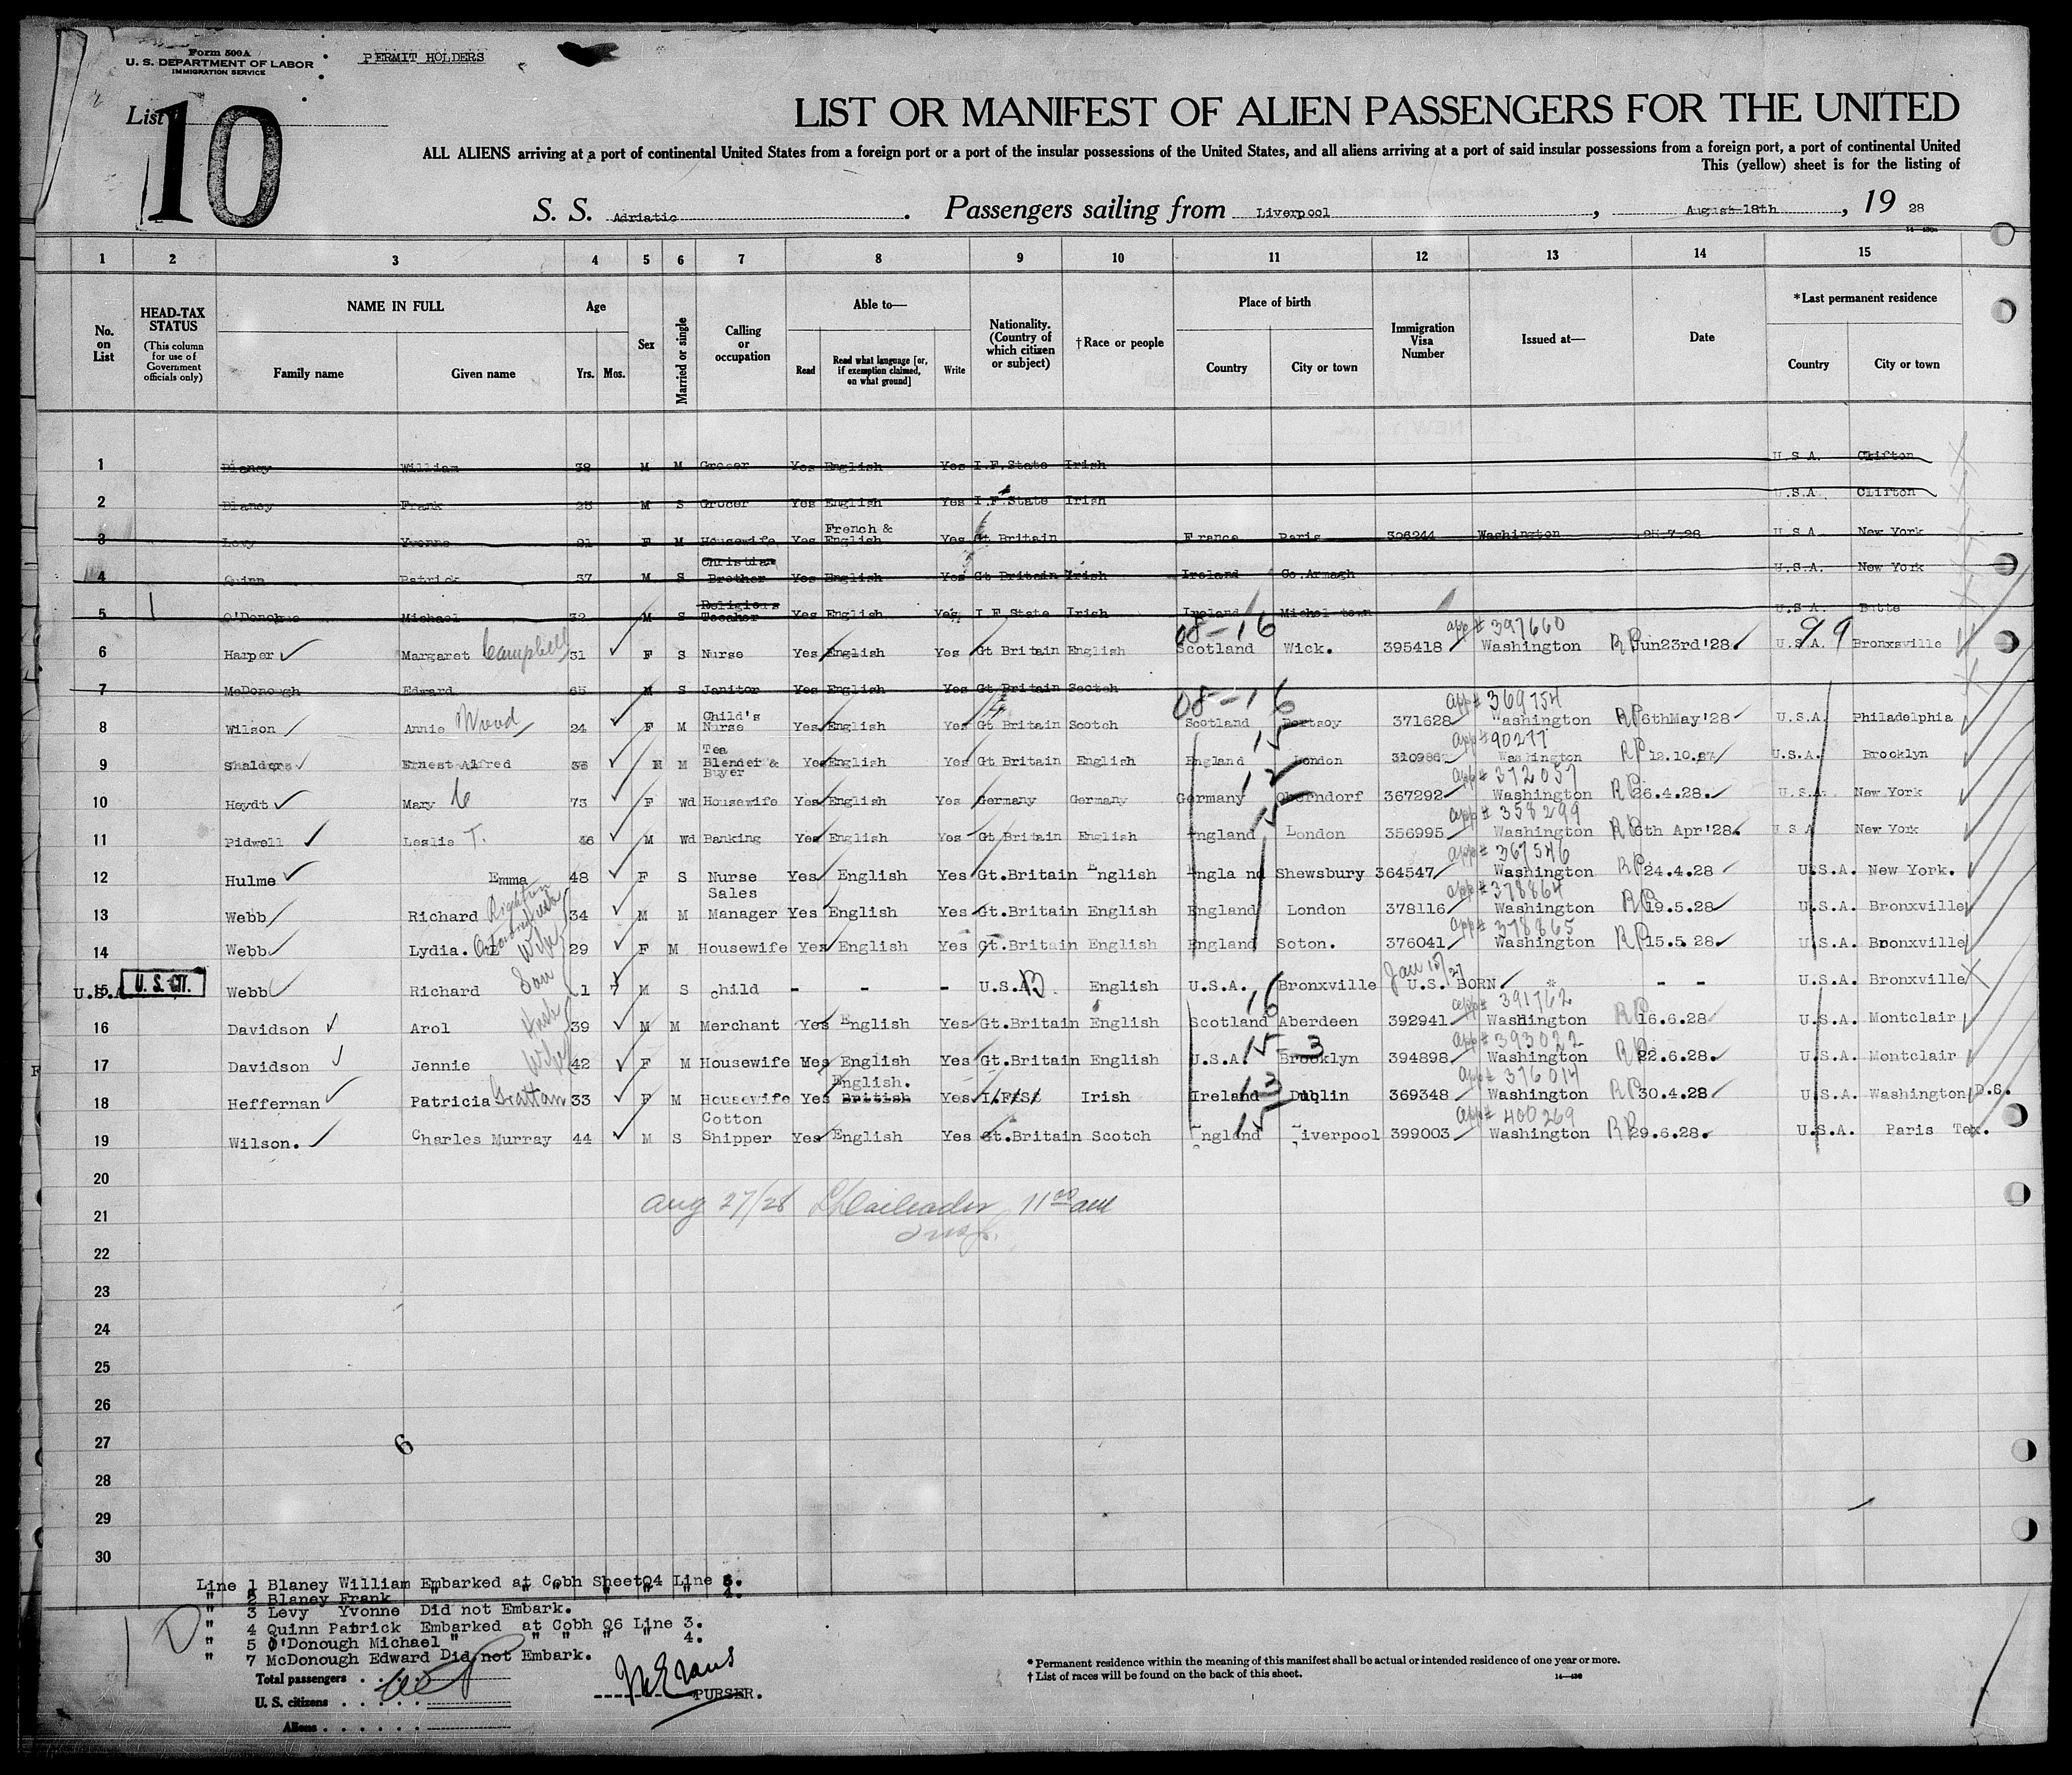 Form 500A
U. S. DEPARTMENT OF LABOR
IMMIGRATION SERVICE
PERMIT HOLDERS
List 10
LIST OR MANIFEST OF ALIEN PASSENGERS FOR THE UNITED
ALL ALIENS arriving at a port of continental United States from a foreign port or a port of the insular possessions of the United States, and all aliens arriving at a port of said insular possessions from a foreign port, a port of continental United
This (yellow) sheet is for the listing of
S. S. Adriatic . Passengers sailing from Liverpool , August 18th , 19 28
1 2 3 4 5 6 7 8 9 10 11 12 13 14 15
No. on List
HEAD-TAX STATUS (This column for use of Government officials only)
NAME IN FULL Family name Given name
Age Yrs. Mos.
Sex
Married or single
Calling or occupation
Able to— Read Read what language [or, if exemption claimed, on what ground] Write
Nationality. (Country of which citizen or subject)
†Race or people
Place of birth Country City or town
Immigration Visa Number
Issued at—
Date
*Last permanent residence Country City or town
1 Blaney William 38 M M Grocer Yes English Yes I.F.State Irish U.S.A. Clifton
2 Blaney Frank 25 M S Grocer Yes English Yes I.F.State Irish U.S.A Clifton
3 Levy Yvonne 21 F M Housewife Yes French & English Yes Gt Britain France Paris 306244 Washington 25-7-28 U.S.A New York
4 Quinn Patrick 37 M S Christian Brother Yes English Yes Gt Britain Irish Ireland Co.Armagh U.S.A. New York
5 O'Donohue Michael 32 M S Religious Teacher Yes English Yes I.F.State Irish Ireland Michel town U.S.A. Butte
08-16 app # 397660 99
6 Harper Margaret Campbell 31 F S Nurse Yes English Yes Gt Britain English Scotland Wick. 395418 Washington RP Jun23rd'28. U.S.A. Bronxsville
7 McDonough Edward 65 M S Janitor Yes English Yes Gt Britain Scotch
08-16 app # 369754
8 Wilson Annie Wood 24 F M Child's Nurse Yes English Yes Gt Britain Scotch Scotland Portsoy 371628 Washington RP 6thMay'28 U.S.A. Philadelphia
15 app # 90277
9 Shalders Ernest Alfred 35 M M Tea Blender & Buyer Yes English Yes Gt Britain English England London 310986 Washington RP 12.10.27 U.S.A. Brooklyn
12 app # 372057
10 Heydt Mary C 73 F Wd Housewife Yes English Yes Germany Germany Germany Oberndorf 367292 Washington RP 26.4.28. U.S.A. New York
15 app # 358299
11 Pidwell Leslie T. 46 M Wd Banking Yes English Yes Gt Britain English England London 356995 Washington RP 6th Apr'28. U S A New York
app # 367546
12 Hulme Emma 48 F S Nurse Yes English Yes Gt.Britain English England Shewsbury 364547 Washington RP 24.4.28 U.S.A. New York.
app # 378864
13 Webb Richard 34 M M Sales Manager Yes English Yes Gt.Britain English England London 378116 Washington RP 19.5.28 U.S.A. Bronxville
app # 378865
14 Webb Lydia. Wife 29 F M Housewife Yes English Yes Gt.Britain English England Soton. 376041 Washington RP 15.5.28. U.S.A. Bronxville
Jan 15/27
U.S.A 15 U. S. CIT. Webb Richard Son 1 7 M S child - - - U.S.A. English U.S.A. Bronxville U.S. BORN * - - U.S.A. Bronxville
16 app # 391762
16 Davidson Arol Husb 39 M M Merchant Yes English Yes Gt.Britain English Scotland Aberdeen 392941 Washington RP 16.6.28 U.S.A. Montclair
15-3 app # 393022
17 Davidson Jennie Wife 42 F M Housewife Yes English Yes Gt.Britain English U.S.A. Brooklyn 394898 Washington RP 22.6.28. U.S.A. Montclair
13 app # 376014
18 Heffernan Patricia Grattan 33 F M Housewife Yes English. British Yes I/F/S/ Irish Ireland Dublin 369348 Washington RP 30.4.28 U.S.A. Washington D.S.
15 app # 400269
19 Wilson. Charles Murray 44 M S Cotton Shipper Yes English Yes Gt.Britain Scotch England Liverpool 399003 Washington RP 29.6.28. U.S.A. Paris Tex.
20
Aug 27/28 11 00 am
21
Insp.
22
23
24
25
26
27
6
28
29
30
Line 1 Blaney William Embarked at Cobh Sheet Q4 Line 3.
" 2 Blaney Frank " " " " " " 4.
" 3 Levy Yvonne Did not Embark.
" 4 Quinn Patrick Embarked at Cobh Q6 Line 3.
" 5 O'Donough Michael " " " " " 4.
" 7 McDonough Edward Did not Embark.
Total passengers
U. S. citizens
Aliens
PURSER.
* Permanent residence within the meaning of this manifest shall be actual or intended residence of one year or more.
† List of races will be found on the back of this sheet.
14—430